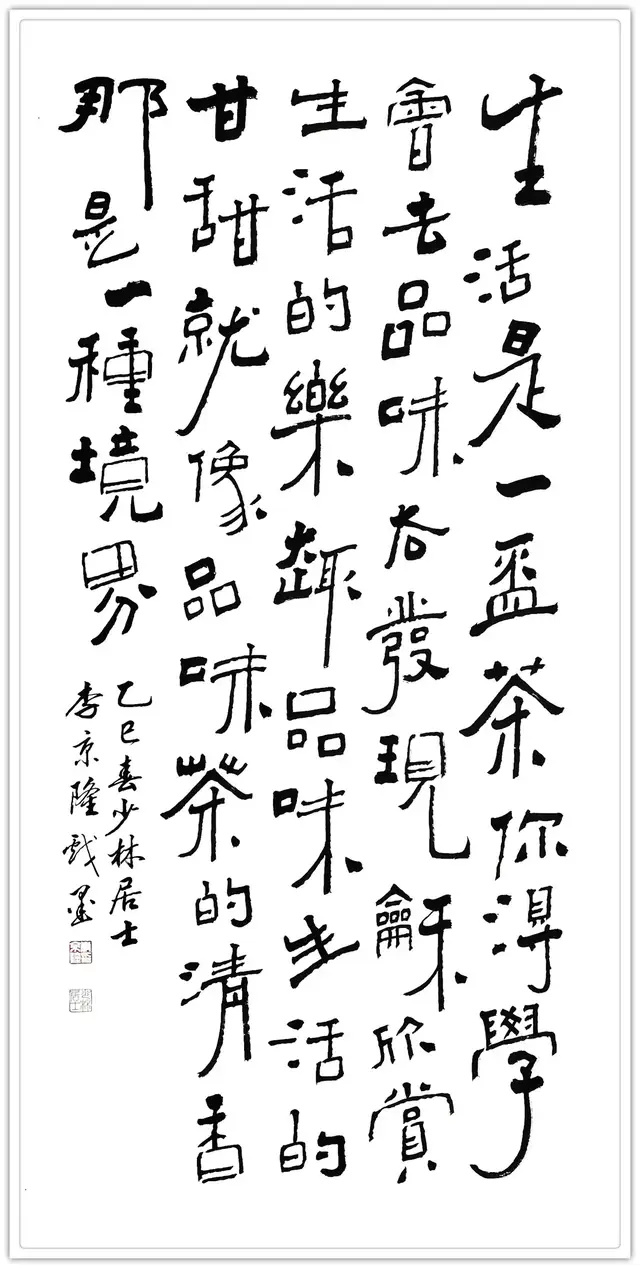 生活是一盃茶你淂學
會去品味去發現龢欣賞
生活的樂趣品味生活的
甘甜就像品味茶的清香
那是一種境界
乙巳春少林居士
李京隆戲墨